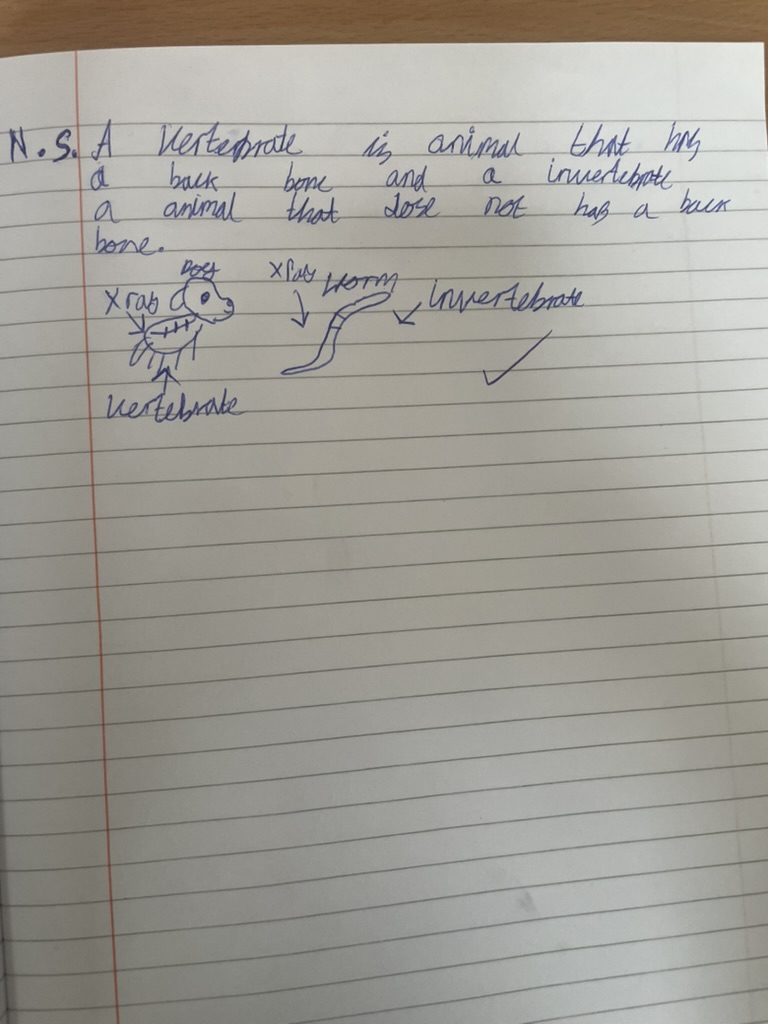 N.S. A Vertebrate is animal that has
a back bone and a invertebrate
a animal that dose not has a back
bone.
Dog
X ray
X ray
Worm
invertebrate
Vertebrate